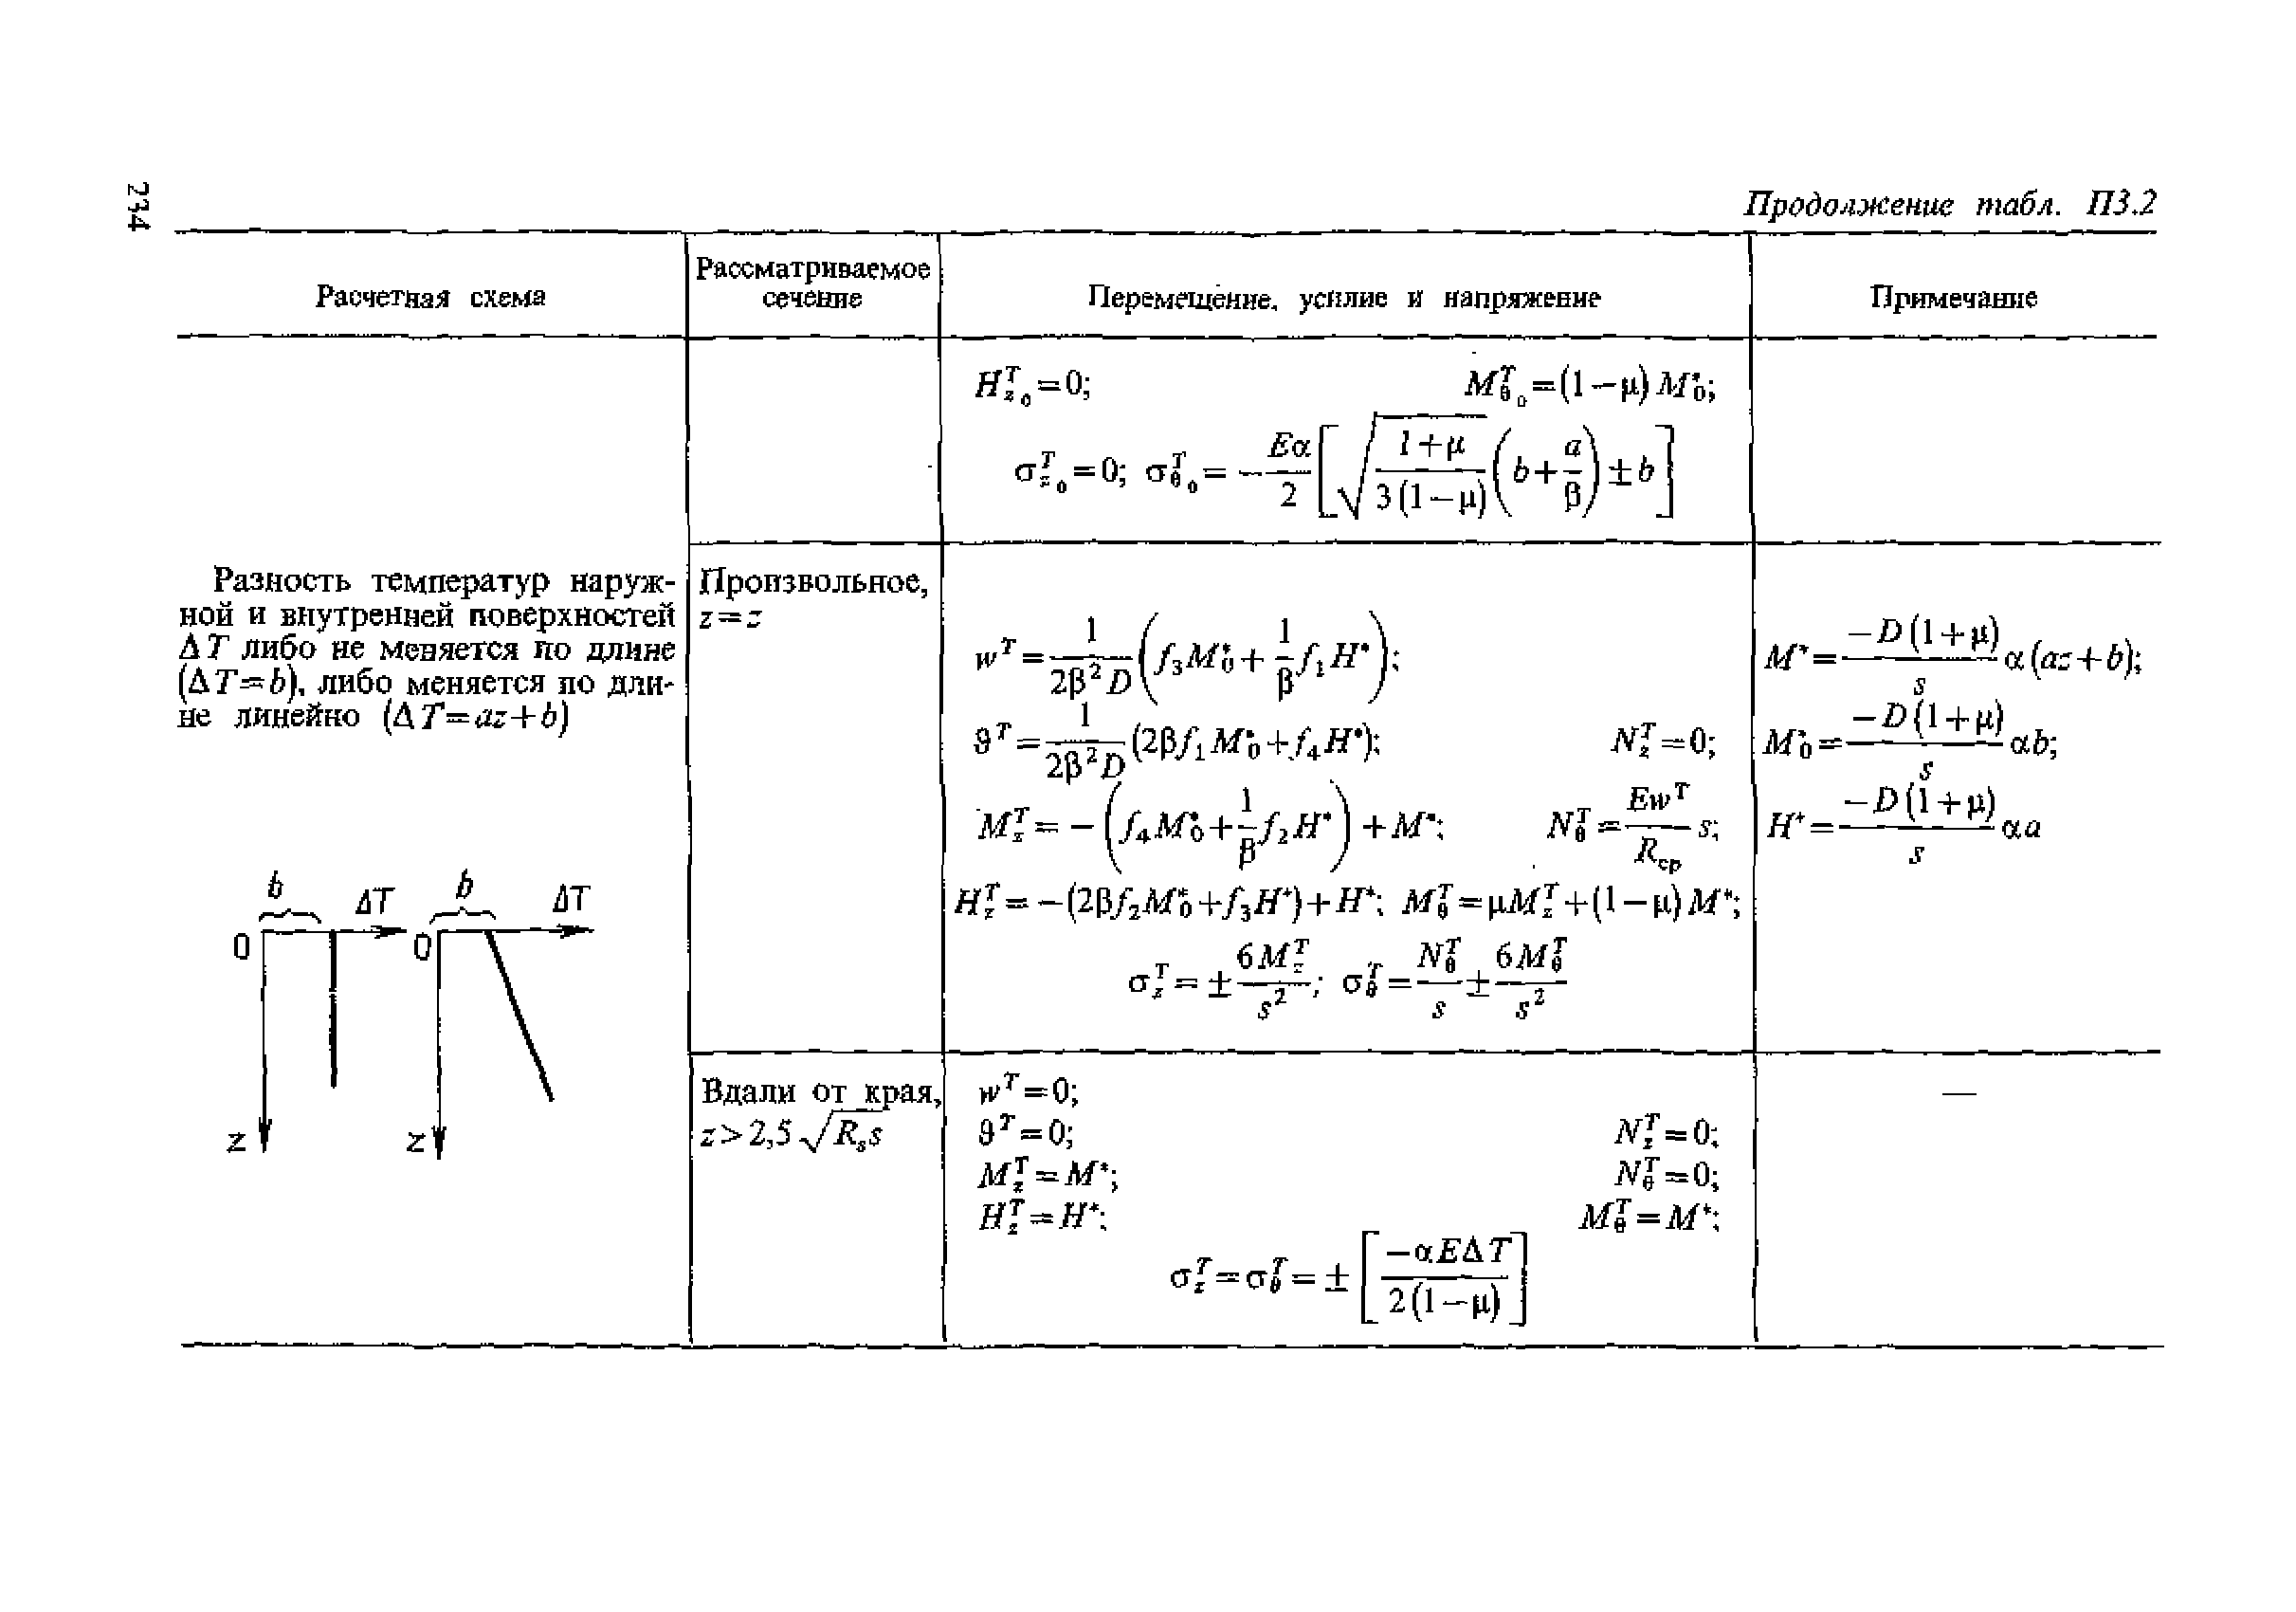 234
Продолжение табл. П3.2
Расчетная схема
Рассматриваемое
сечение
Перемещение, усилие и напряжение
Примечание
H_{z_0}^T=0; M_{θ_0}^T=(1−μ)M_0^*;
σ_{z_0}^T=0; σ_{θ_0}^T=−\frac{Eα}{2}[\sqrt{\frac{1+μ}{3(1−μ)}}(b+\frac{a}{β})±b]
Разность температур наруж-
ной и внутренней поверхностей
ΔT либо не меняется по длине
(ΔT=b), либо меняется по дли-
не линейно (ΔT=az+b)
b ΔT b ΔT
0 0
z z
Произвольное,
z=z
w^T=\frac{1}{2β^2D}(f_3M_0^*+\frac{1}{β}f_1H^*);
ϑ^T=\frac{1}{2β^2D}(2βf_1M_0^*+f_4H^*); N_z^T=0;
M_z^T=−(f_4M_0^*+\frac{1}{β}f_2H^*)+M^*; N_θ^T=\frac{Ew^T}{R_{ср}}s;
H_z^T=−(2βf_2M_0^*+f_3H^*)+H^*; M_θ^T=μM_z^T+(1−μ)M^*;
σ_z^T=±\frac{6M_z^T}{s^2}; σ_θ^T=\frac{N_θ^T}{s}±\frac{6M_θ^T}{s^2}
M^*=\frac{−D(1+μ)}{s}α(az+b);
M_0^*=\frac{−D(1+μ)}{s}αb;
H^*=\frac{−D(1+μ)}{s}αa
Вдали от края,
z>2,5\sqrt{R_s s}
w^T=0;
ϑ^T=0; N_z^T=0;
M_z^T=M^*; N_θ^T=0;
H_z^T=H^*; M_θ^T=M^*;
σ_z^T=σ_θ^T=±[\frac{−αEΔT}{2(1−μ)}]
—